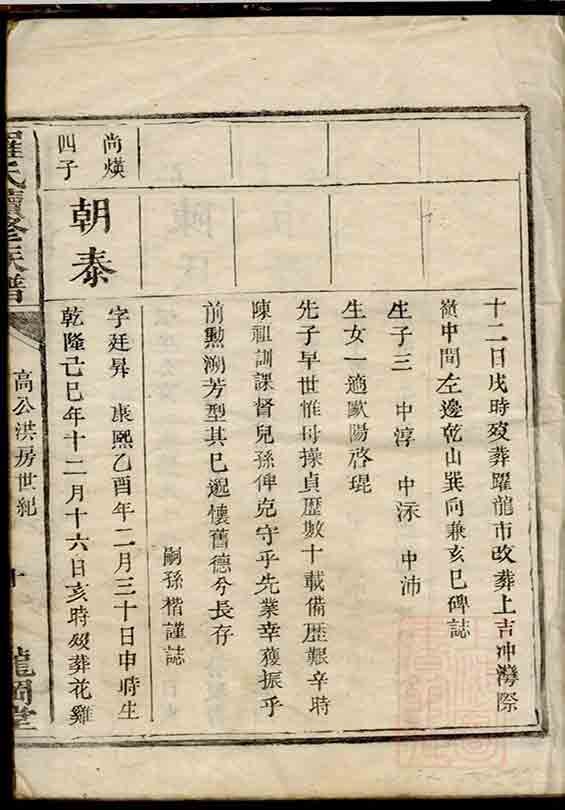 十二日戌時歿葬躍龍市改葬上吉冲灣際
嶺中間左邊乾山巽向兼亥巳碑誌
生子三 中淳 中泳 中沛
生女一適歐陽啓琨
先子早世惟母操貞歷數十載備歷艱辛時
陳祖訓課督兒孫俾克守乎先業幸獲振乎
前勲溯芳型其已邈懷舊德兮長存
嗣孫楷謹誌
尚煐
四子
朝泰
字廷昇 康熙乙酉年二月三十日申時生
乾隆己巳年十二月十六日亥時歿葬花雞
羅氏續修族譜
高公洪房世紀
龍岡堂